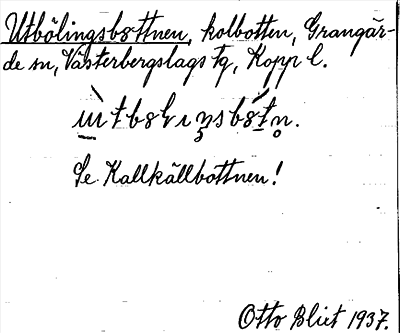 Utbölingsbottnen, kolbotten, Grangär-
de sn, Västerbergslags fg, Kopp l.
Se Kallkällbottnen!
Otto Blixt 1937.